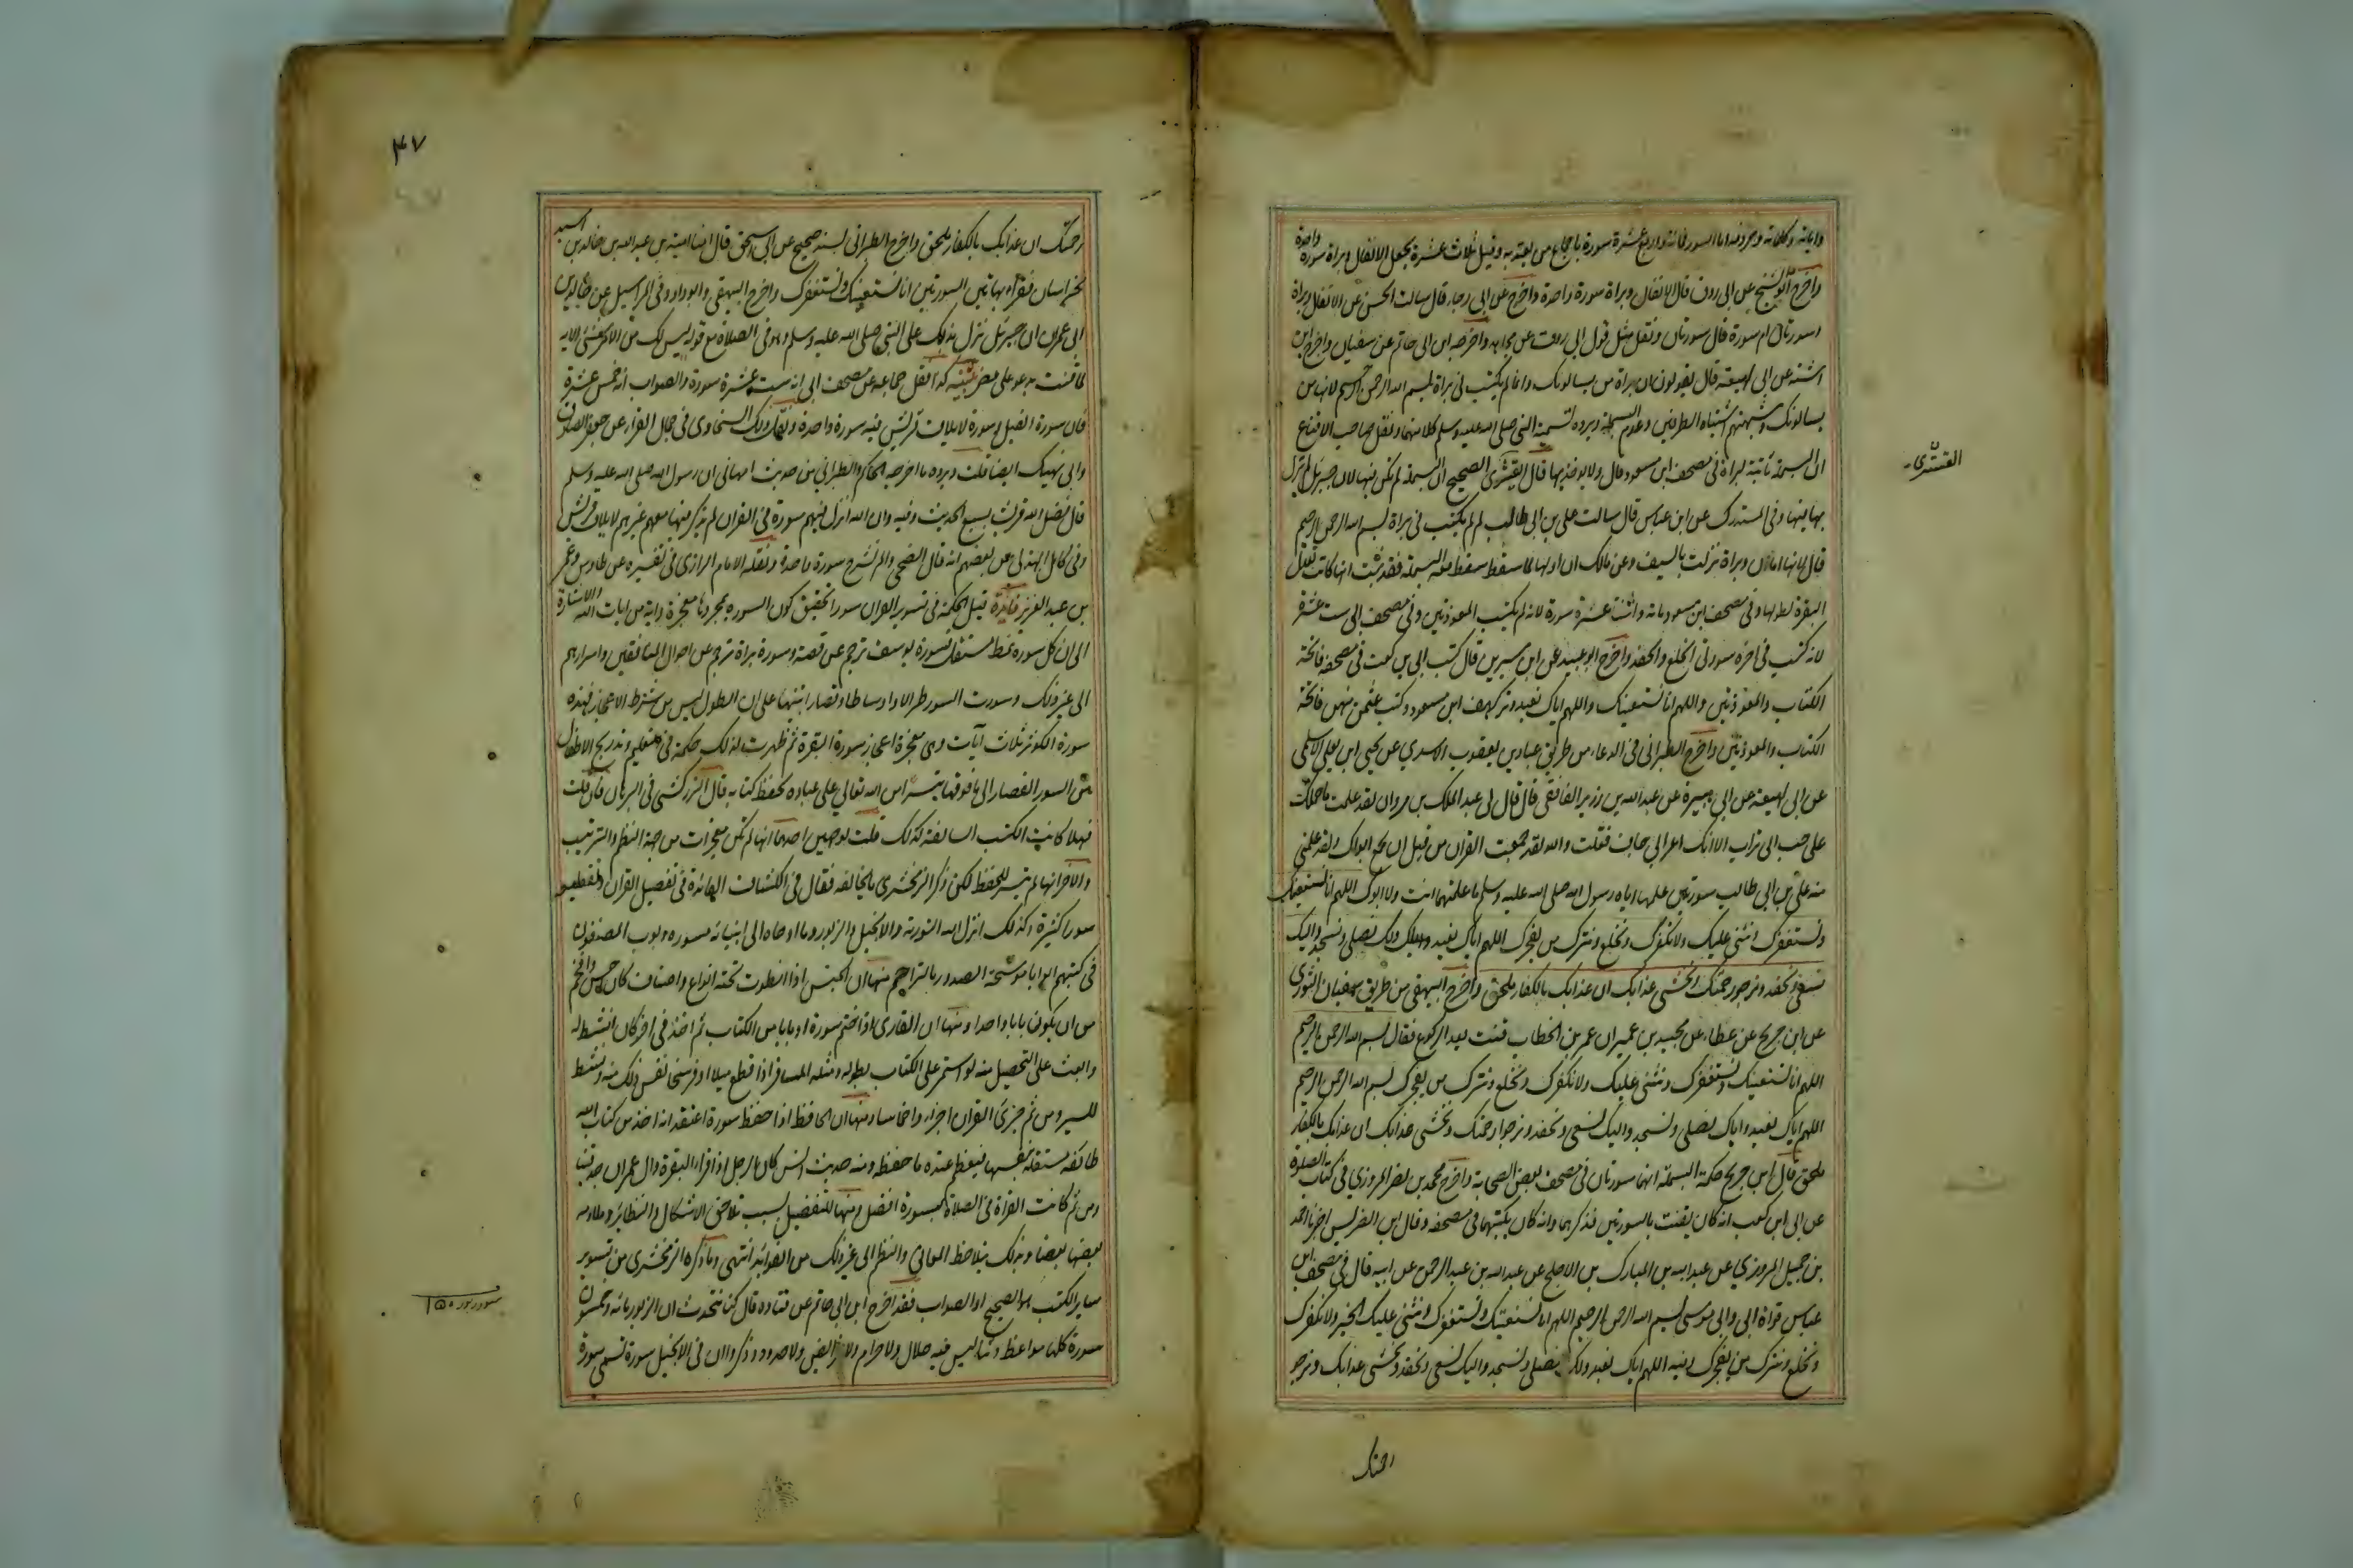 واياته وكلماته وحروفه اما السور فمائة واربع عشرة سورة باجماع من يعتد به وقيل ثلاث عشرة بجعل الانفال وبراة سورة واحدة
واخرج ابو الشيخ عن ابى روق قال الانفال وبراة سورة واحدة واخرج عن ابى رجاء قال سالت الحسن عن الانفال وبراة
اسورتان ام سورة قال سورتان ونقل مثل قول ابى روق عن مجاهد واخرجه ابن ابى حاتم عن سفيان واخرج ابن
اشته عن ابى لهيعة قال يقولون ان براة من يسالونك وانما لم يكتب فى براة بسم الله الرحمن الرحيم لانها من
يسالونك وشبهتهم اشتباه الطرفين وعدم البسملة ويرده تسمية النبى صلى الله عليه وسلم كلا منهما ونقل صاحب الاقناع
ان البسملة ثابتة لبراة فى مصحف ابن مسعود قال ولا يوخذ بهذا قال القشيرى الصحيح ان البسملة لم تكن فيها لان جبريل لم ينزل
بها فيها وفى المستدرك عن ابن عباس قال سالت على بن ابى طالب لم لم يكتب فى براة بسم الله الرحمن الرحيم
قال لانها امان وبراة نزلت بالسيف وعن مالك ان اولها لما سقط سقط معه البسملة فقد ثبت انها كانت تعدل
البقرة لطولها وفى مصحف ابن مسعود مائة واثنتا عشرة سورة لانه لم يكتب المعوذتين وفى مصحف ابى ست عشرة
لانه كتب فى اخره سورتى الخلع والحفد واخرج ابو عبيد عن ابن سيرين قال كتب ابى بن كعب فى مصحفه فاتحة
الكتاب والمعوذتين واللهم انا نستعينك واللهم اياك نعبد وتركهن ابن مسعود وكتب عثمن منهن فاتحة
الكتاب والمعوذتين واخرج الطبرانى فى الدعاء من طريق عباد بن يعقوب الاسدي عن يحيى ابن يعلى الاسلمى
عن ابى لهيعة عن ابى هبيرة عن عبد الله بن زرير الغافقى قال قال لى عبد الملك بن مروان لقد علمت ما حملك
على حب ابى تراب الا انك اعرابى جاف فقلت والله لقد جمعت القران من قبل ان يجمع ابواك ولقد علمنى
منه على بن ابى طالب سورتين علمهما اياه رسول الله صلى الله عليه وسلم ما علمتهما انت ولا ابوك اللهم انا نستعينك
ونستغفرك ونثنى عليك ولا نكفرك ونخلع ونترك من يفجرك اللهم اياك نعبد ولك نصلى ونسجد واليك
نسعى ونحفد ونرجو رحمتك ونخشى عذابك ان عذابك بالكفار ملحق واخرج البيهقى من طريق سفيان الثورى
عن ابن جريج عن عطاء عن عبيد بن عمير ان عمر بن الخطاب قنت بعد الركوع فقال بسم الله الرحمن الرحيم
اللهم انا نستعينك ونستغفرك ونثنى عليك ولا نكفرك ونخلع ونترك من يفجرك بسم الله الرحمن الرحيم
اللهم اياك نعبد واياك نصلى ونسجد واليك نسعى ونحفد ونرجوا رحمتك ونخشى عذابك ان عذابك بالكفار
ملحق قال ابن جريج حكمة البسملة انهما سورتان فى مصحف بعض الصحابة واخرج محمد بن نصر المروزي فى كتاب الصلوة
عن ابى ابن كعب انه كان يقنت بالسورتين فذكرهما وانه كان يكتبهما فى مصحفه وقال ابن الضريس اخبرنا احمد
بن جميل المروزي عن عبد الله بن المبارك بن الاجلح عن عبد الله بن عبد الرحمن عن ابيه قال فى مصحف ابن
عباس قراة ابى وابى موسى بسم الله الرحمن الرحيم اللهم انا نستعينك ونستغفرك ونثنى عليك الخير ولا نكفرك
ونخلع ونترك من يفجرك وفيه اللهم اياك نعبد ولك نصلى ونسجد واليك نسعى ونحفد ونخشى عذابك ونرجو
رحمتك
٤٧
رحمتك ان عذابك بالكفار ملحق واخرج الطبرانى بسند صحيح عن ابى اسحق قال امنا امية بن عبد الله بن خالد بن اسيد
بخراسان فقرأ بهاتين السورتين انا نستعينك ونستغفرك واخرج البيهقى وابو داود فى المراسيل عن خالد بن
ابى عمران ان جبريل نزل بذلك على النبى صلى الله عليه وسلم وهو فى الصلاة مع قوله ليس لك من الامر شئ الاية
لما قنت يدعو على مضر تنبيه كذا نقل جماعة عن مصحف ابى انه ست عشرة سورة والصواب انه خمس عشرة
فان سورة الفيل وسورة لايلاف قريش فيه سورة واحدة ونقل ذلك السخاوى فى جمال القراء عن جعفر الصادق
وابى نهيك ايضا قلت ويرده ما اخرجه الحاكم والطبرانى من حديث ام هانى ان رسول الله صلى الله عليه وسلم
قال فضل الله قريشا بسبع الحديث وفيه وان الله انزل فيهم سورة فى القران لم يذكر فيها معهم غيرهم لايلاف قريش
وفى كامل الهذلى عن بعضهم انه قال الضحى والم نشرح سورة واحدة ونقله الامام الرازى فى تفسيره عن طاوس وعمر
بن عبد العزيز فائدة قيل الحكمة فى تسوير القران سورا تحقيق كون السورة بمجردها معجزة واية من ايات الله والاشارة
الى ان كل سورة نمط مستقل فسورة يوسف تترجم عن قصته وسورة براة تترجم عن احوال المنافقين واسرارهم
الى غير ذلك وسورت السور طوالا واوساطا وقصارا تنبيها على ان الطول ليس من شرط الاعجاز فهذه
سورة الكوثر ثلاث آيات وهى معجزة اعجاز سورة البقرة ثم ظهرت لذلك حكمة فى التعليم وتدريج الاطفال
من السور القصار الى ما فوقها تيسيرا من الله تعالى على عباده لحفظ كتابه قال الزركشى فى البرهان فان قلت
فهلا كانت الكتب السالفة كذلك قلت لوجهين احدهما انها لم تكن معجزات من جهة النظم والترتيب
والاخر انها لم تيسر للحفظ لكن ذكر الزمخشرى ما يخالفه فقال فى الكشاف الفائدة فى تفصيل القران وتقطيعه
سورا كثيرة وكذلك انزل الله التورية والانجيل والزبور وما اوحاه الى انبيائه مسورة وبوب المصنفون
فى كتبهم ابوابا موشحة الصدور بالتراجم منها ان الجنس اذا انطوت تحته انواع واصناف كان احسن وافخم
من ان يكون بابا واحدا ومنها ان القارى اذا ختم سورة او بابا من الكتاب ثم اخذ فى اخر كان انشط له
وابعث على التحصيل منه لو استمر على الكتاب بطوله ومثله المسافر اذا قطع ميلا او فرسخا نفس ذلك منه ونشط
للسير ومن ثم جزئ القران اجزاء واخماسا ومنها ان الحافظ اذا حفظ سورة اعتقد انه اخذ من كتاب الله
طائفة مستقلة بنفسها فيعظم عنده ما حفظه ومنه حديث انس كان الرجل اذا قرأ البقرة وال عمران جد فينا
ومن ثم كانت القراة فى الصلاة بسورة افضل ومنها التفصيل بسبب تلاحق الاشكال والنظائر وملاءمة
بعضها بعضا وبذلك يتلاحظ المعانى والنظم الى غير ذلك من الفوائد انتهى وما ذكره الزمخشرى من تسوير
ساير الكتب هو الصحيح او الصواب فقد اخرج ابن ابى حاتم عن قتادة قال كنا نتحدث ان الزبور مائة وخمسون
سورة كلها مواعظ وثناء ليس فيه حلال ولا حرام ولا فرائض ولا حدود وذكروا ان فى الانجيل سورة تسمى سورة